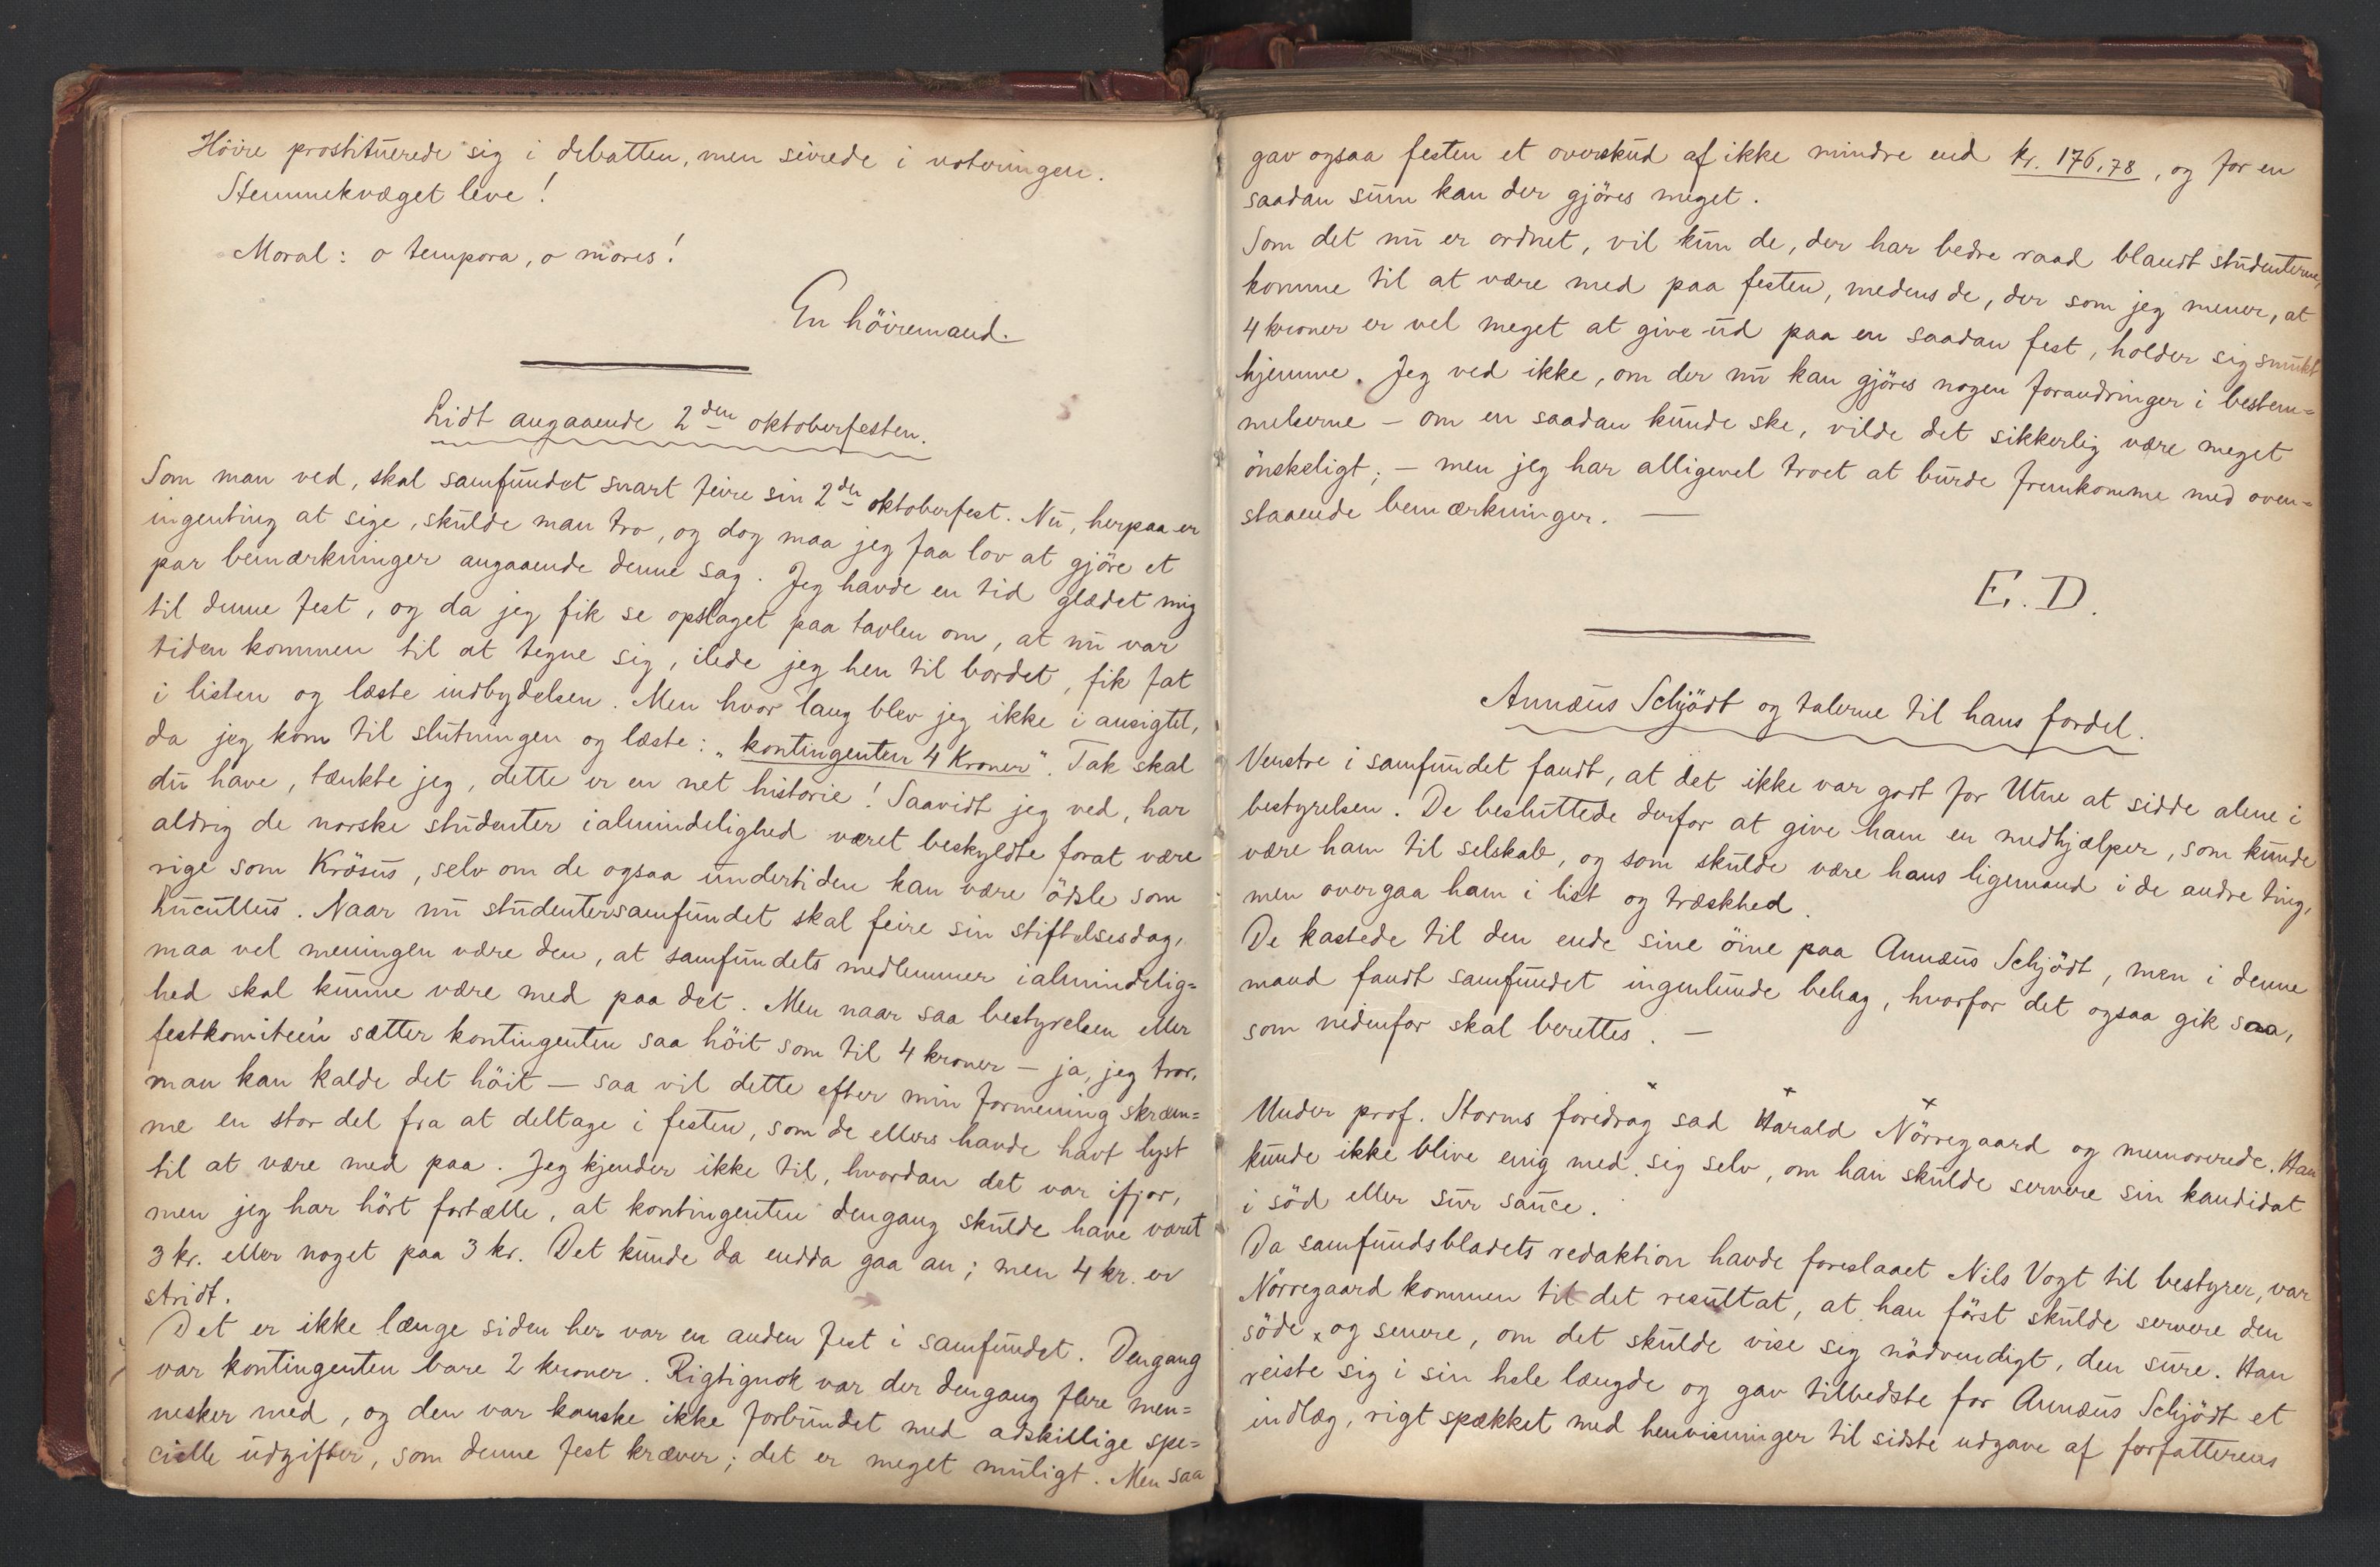 Höire prostituerede sig i debatten, men seirede i votringen.
Stemmekvæget leve!
Moral: o tempora, o mores!
En höiremand.
Lidt angaaende 2den oktoberfesten.
Som man ved, skal samfundet snart feire sin 2den oktoberfest. Nu, herpaa er
ingenting at sige, skulde man tro, og dog maa jeg faa lov at gjöre et
par bemærkninger angaaende denne sag. Jeg havde en tid glædet mig
til denne fest, og da jeg fik se opslaget paa tavlen om, at nu var
tiden kommen til at tegne sig, ilede jeg hen til bordet, fik fat
i listen og læste indbydelsen. Men hvor lang blev jeg ikke i ansigtet,
da jeg kom til slutningen og læste: „kontingenten 4 Kroner". Tak skal
du have, tænkte jeg, dette er en net historie! Saavidt jeg ved, har
aldrig de norske studenter ialmindelighed været beskyldte forat være
rige som Krösus, selv om de ogsaa undertiden kan være ödsle som
Lucullus. Naar nu studentersamfundet skal feire sin stiftelsesdag,
maa vel meningen være den, at samfundets medlemmer ialmindelig=
hed skal kunne være med paa det. Men naar saa bestyrelsen eller
festkomiteen sætter kontingenten saa höit som til 4 kroner – ja, jeg tror,
man kan kalde det höit – saa vil dette efter min formening skræm=
me en stor del fra at deltage i festen, som de ellers havde havt lyst
til at være med paa. Jeg kjender ikke til, hvordan det var ifjor,
men jeg har hört fortælle, at kontingenten dengang skulde have været
3 kr. eller noget paa 3 kr. Det kunde da endda gaa an; men 4 kr. er
stridt.
Det er ikke længe siden her var en anden fest i samfundet. Dengang
var kontingenten bare 2 kroner. Rigtignok var der dengang flere men=
nesker med, og den var kanske ikke forbundet med adskillige spe=
cielle udgifter, som denne fest kræver; det er meget muligt. Men saa
gav ogsaa festen et overskud af ikke mindre end kr. 176,78, og for en
saadan sum kan der gjöres meget.
Som det nu er ordnet, vil kun de, der har bedre raad blandt studenterne,
komme til at være med paa festen, medens de, der som jeg mener, at
4 kroner er vel meget at give ud paa en saadan fest, holder sig smukt
hjemme. Jeg ved ikke, om der nu kan gjöres nogen forandringer i bestem=
melserne – om en saadan kunde ske, vilde det sikkerlig være meget
önskeligt; – men jeg har alligevel troet at burde fremkomme med oven=
staaende bemærkninger. —
E. D.
Annæus Schjödt og talerne til hans fordel.
Venstre i samfundet fandt, at det ikke var godt for Utne at sidde alene i
bestyrelsen. De besluttede derfor at give ham en medhjælper, som kunde
være ham til selskab, og som skulde være hans ligemand i de andre ting,
men overgaa ham i list og træskhed.
De kastede til den ende sine öine paa Annæus Schjödt, men i denne
mand fandt samfundet ingenlunde behag, hvorfor det ogsaa gik saa,
som nedenfor skal berettes. –
Under prof. Storms foredrag sad Harald Nörregaard og memorerede. Han
kunde ikke blive enig med sig selv, om han skulde servere sin kandidat
i söd eller sur sauce.
Da samfundsbladets redaktion havde foreslaaet Nils Vogt til bestyrer, var
Nörregaard kommen til det resultat, at han först skulde servere den
söde, og senere, om det skulde vise sig nödvendigt, den sure. Han
reiste sig i sin hele længde og gav tilbedste for Annæus Schjödt et
indlæg, rigt spækket med henvisninger til sidste udgave af forfatterens